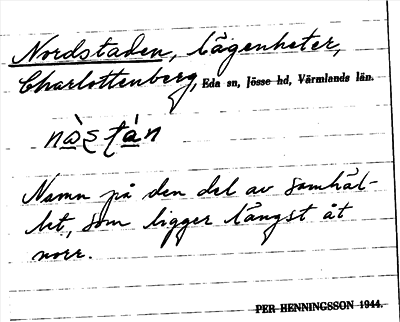 Nordstaden, Lägenheter,
Charlottenberg, Eda sn, Jösse hd, Värmlands län.
Namn på den del av samhäl-
let, som ligger längst åt
norr.
PER HENNINGSSON 1944.